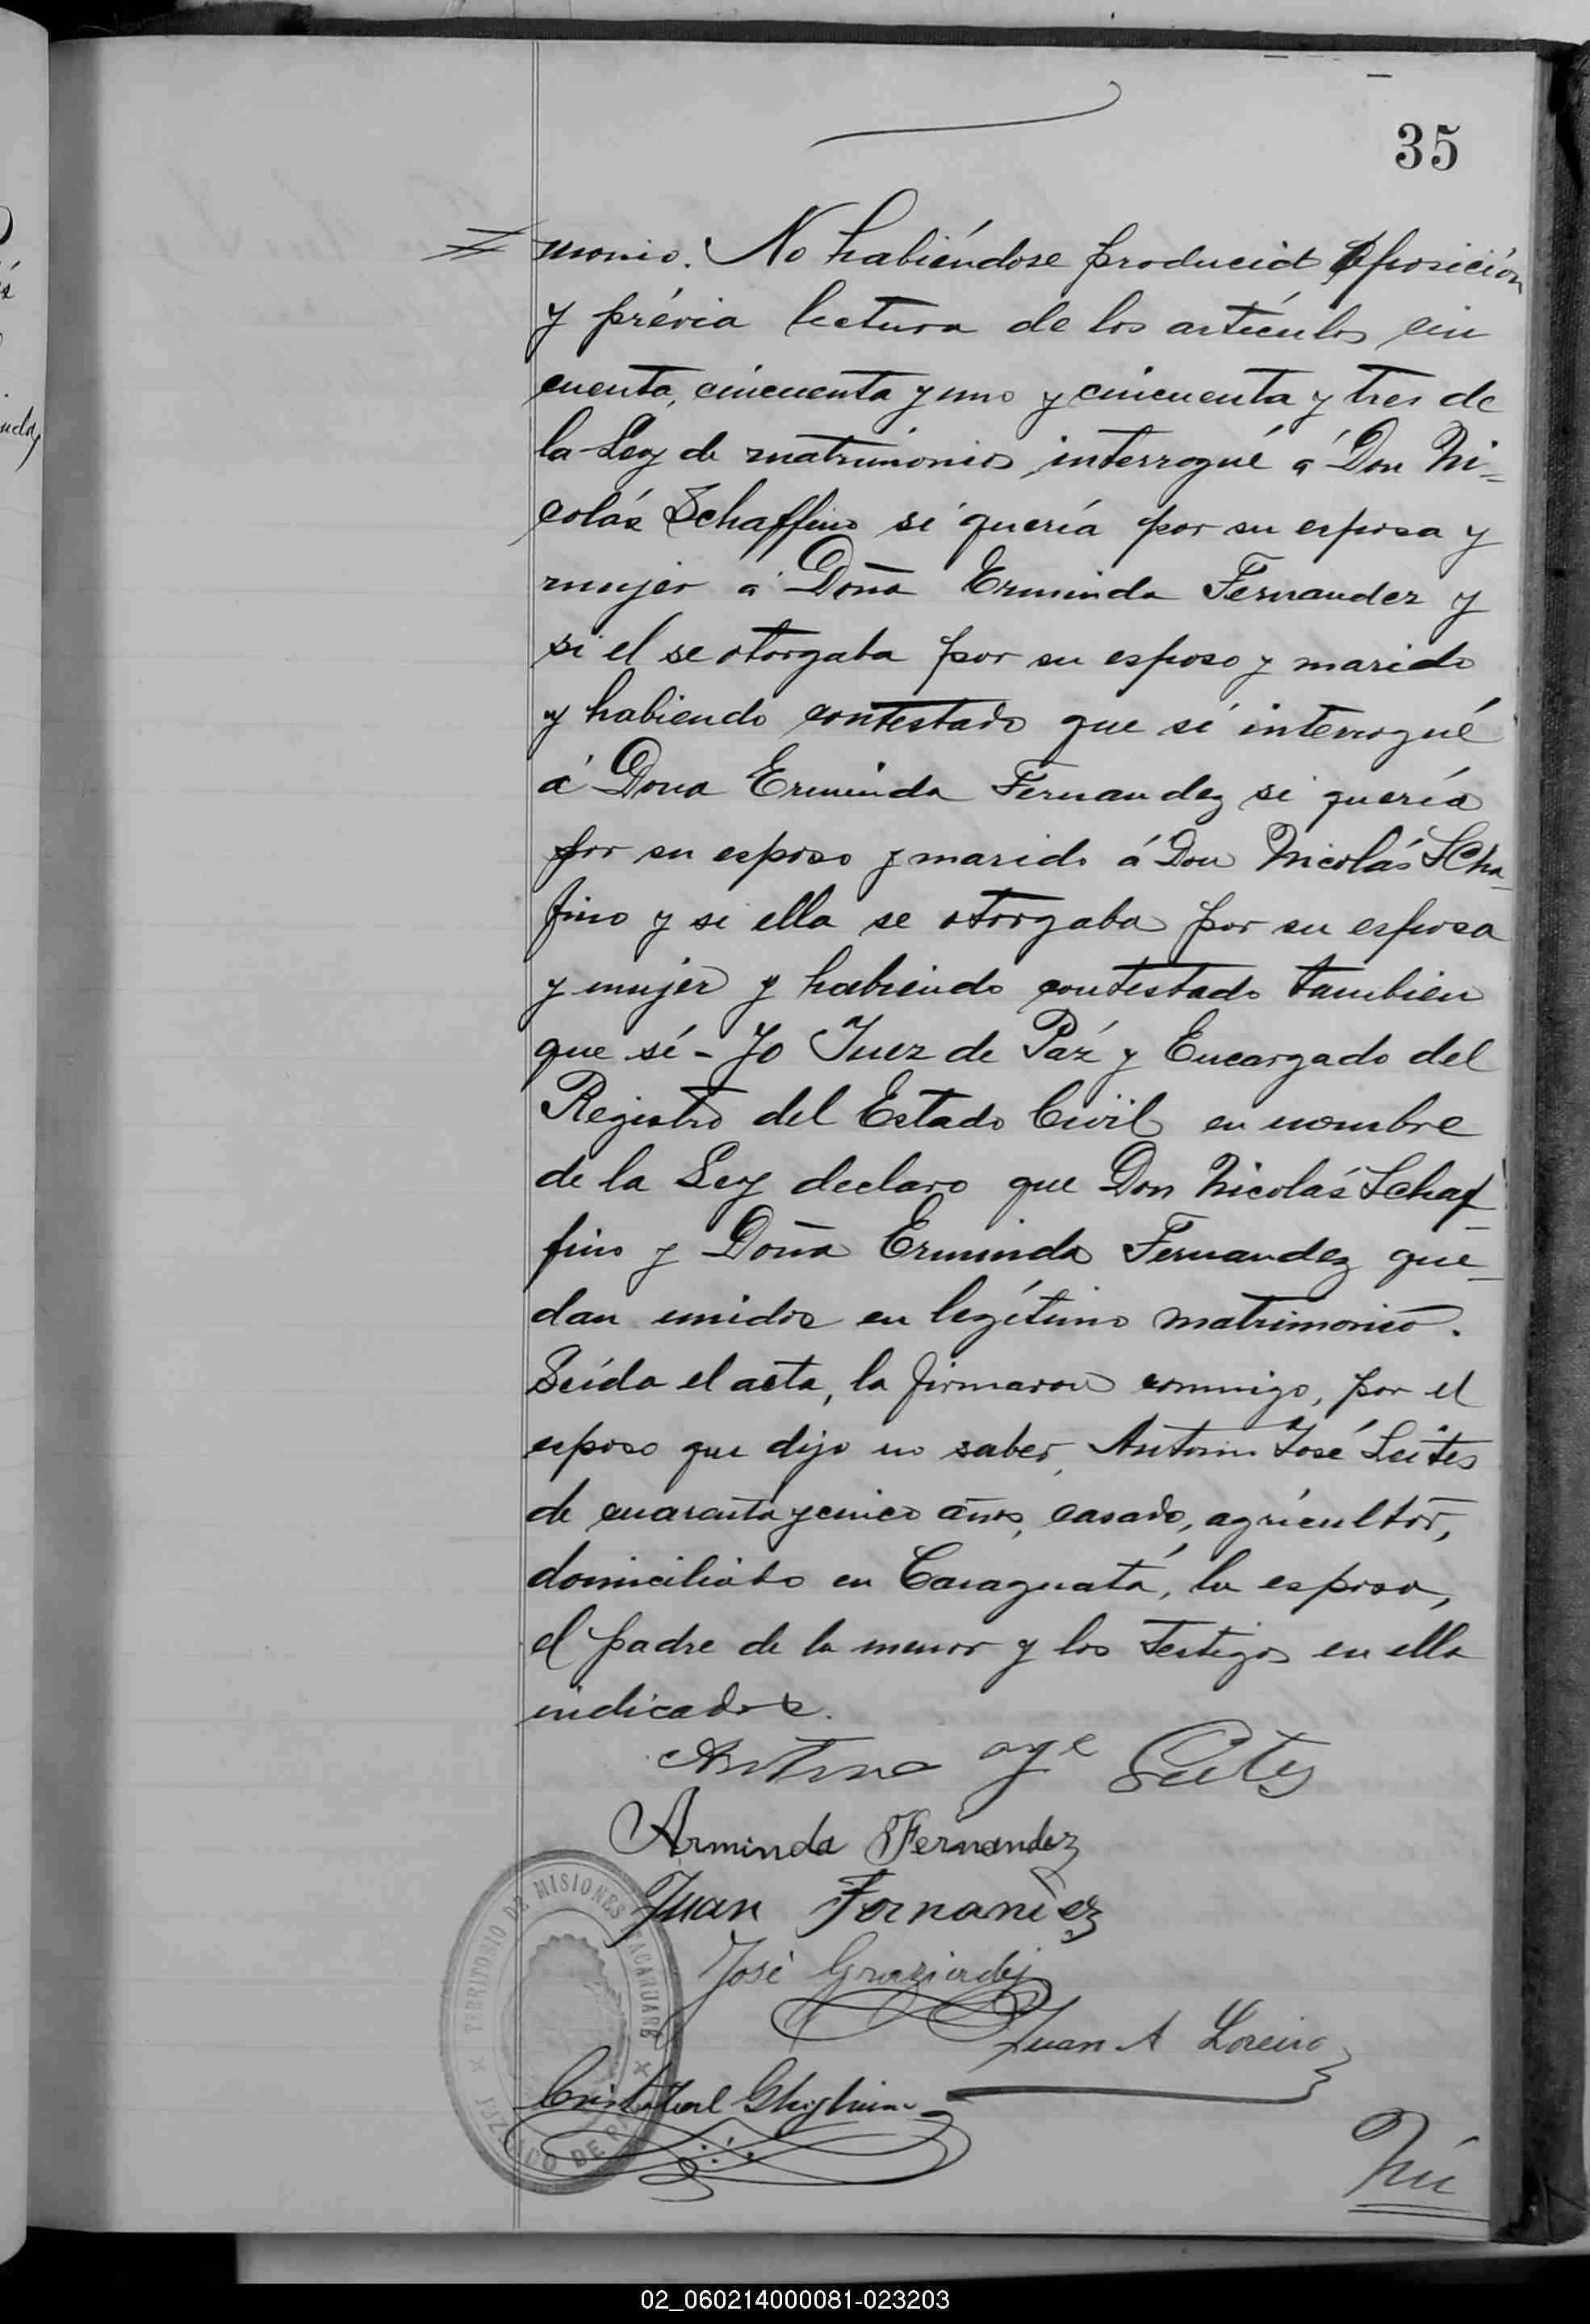 35
monio. No habiéndose producido oposición
y prévia lectura de los artículos cin
cuenta, cincuenta y uno y cincuenta y tres de
la Ley de matrimonios interrogué á Don Ni-
colás Schaffino si quería por su esposa y
mujer á Doña Erminda Fernandez y
si el se otorgaba por su esposo y marido
y habiendo contestado que sí interrogué
á Dona Erminda Fernandez si quería
por su esposo y marido á Don Nicolás Scha-
fino y si ella se otorgaba por su esposa
y mujer y habiendo contestado tambien
que sí - Yo Juez de Paz y Encargado del
Registro del Estado Civil en nombre
de la Ley declaro que Don Nicolás Schaf-
fino y Doña Erminda Fernandez que-
dan unidos en legítimo matrimonio.
Leída el acta, la firmaron conmigo, por el
esposo que dijo no saber, Antonio José Leites
de cuarenta y cinco años, casado, agricultor,
domiciliado en Caraguatá, la esposa,
el padre de la menor y los testigos en ella
indicados.
Leites
Arminda Fernandez
Juan Fernandez
José Graziadei
Juan A Loreiro
Cristobal
TERRITORIO DE MISIONES ITACARUARE
JUZGADO DE PAZ
Nú
02_060214000081-023203